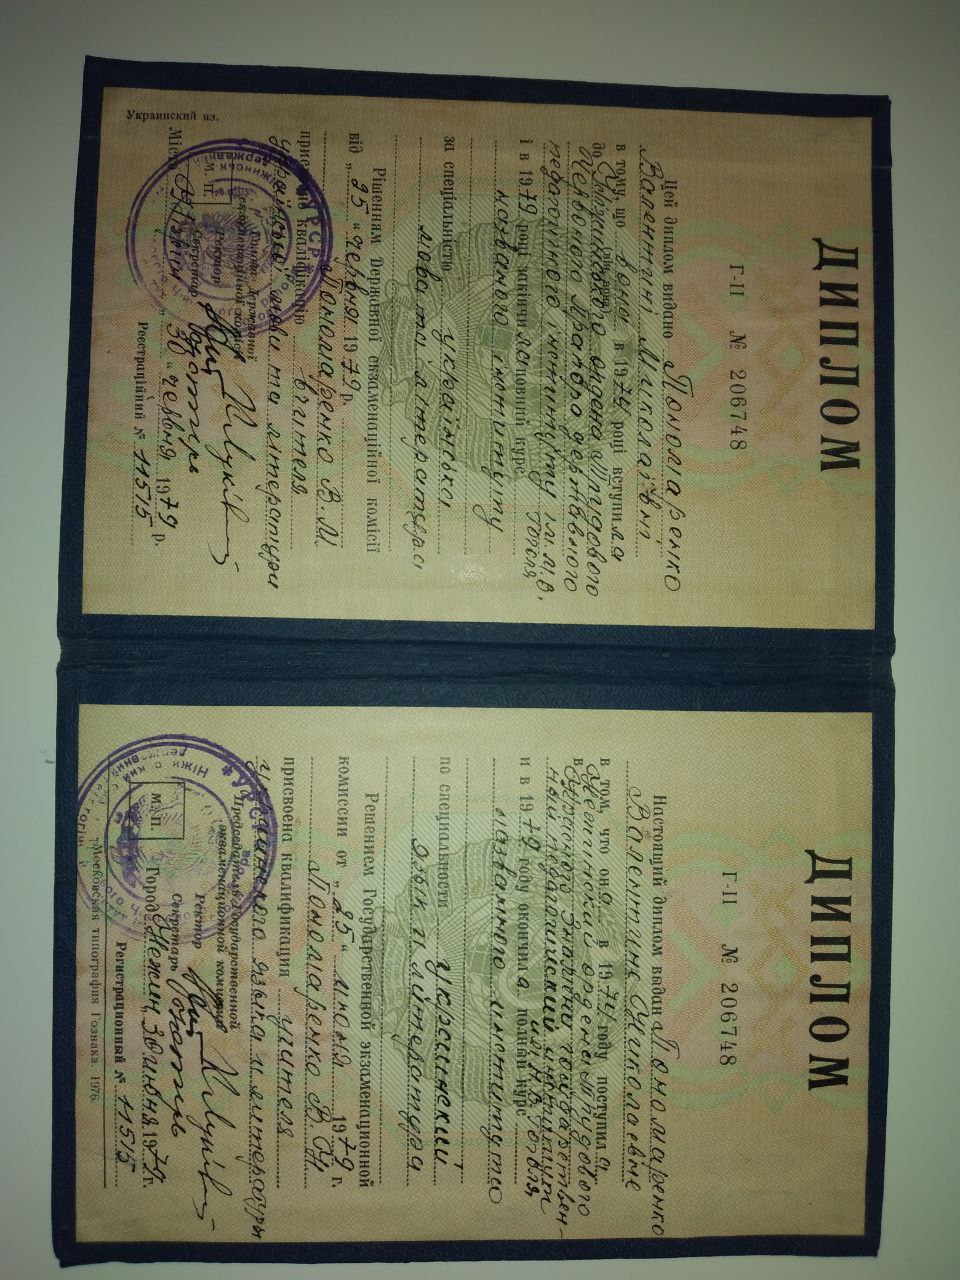 ДИПЛОМ
Г-II № 206748
Цей диплом видано Пономаренко
Валентині Миколаївні
в тому, що вона в 1974 році вступила
до Ніжинського ордена Трудового
Червоного Прапора державного
педагогічного інституту ім. М.В. Гоголя
і в 1979 році закінчила повний курс
названого інституту
за спеціальністю українська
мова та література
Рішенням Державної екзаменаційної комісії
від „25“ червня 1979 р.
Пономаренко В. М.
присвоєно кваліфікацію вчителя
української мови та літератури
Голова Державної
екзаменаційної комісії
Ректор
Секретар
М. П.
Місто Ніжин „30“ червня 1979 р.
Реєстраційний № 11515
Украинский яз.
ДИПЛОМ
Г-II № 206748
Настоящий диплом выдан Пономаренко
Валентине Николаевне
в том, что она в 1974 году поступила
в Нежинский ордена Трудового
Красного Знамени государственный педагогический институт
им. Н.В. Гоголя
и в 1979 году окончила полный курс
названного института
по специальности украинский
язык и литература
Решением Государственной экзаменационной
комиссии от „25“ июня 1979 г.
Пономаренко В. Н.
присвоена квалификация учителя
украинского языка и литературы
Председатель Государственной
экзаменационной комиссии
Ректор
Секретарь
М. П.
Город Нежин, 30 июня 1979 г.
Регистрационный № 11515
Московская типография Гознака. 1976.